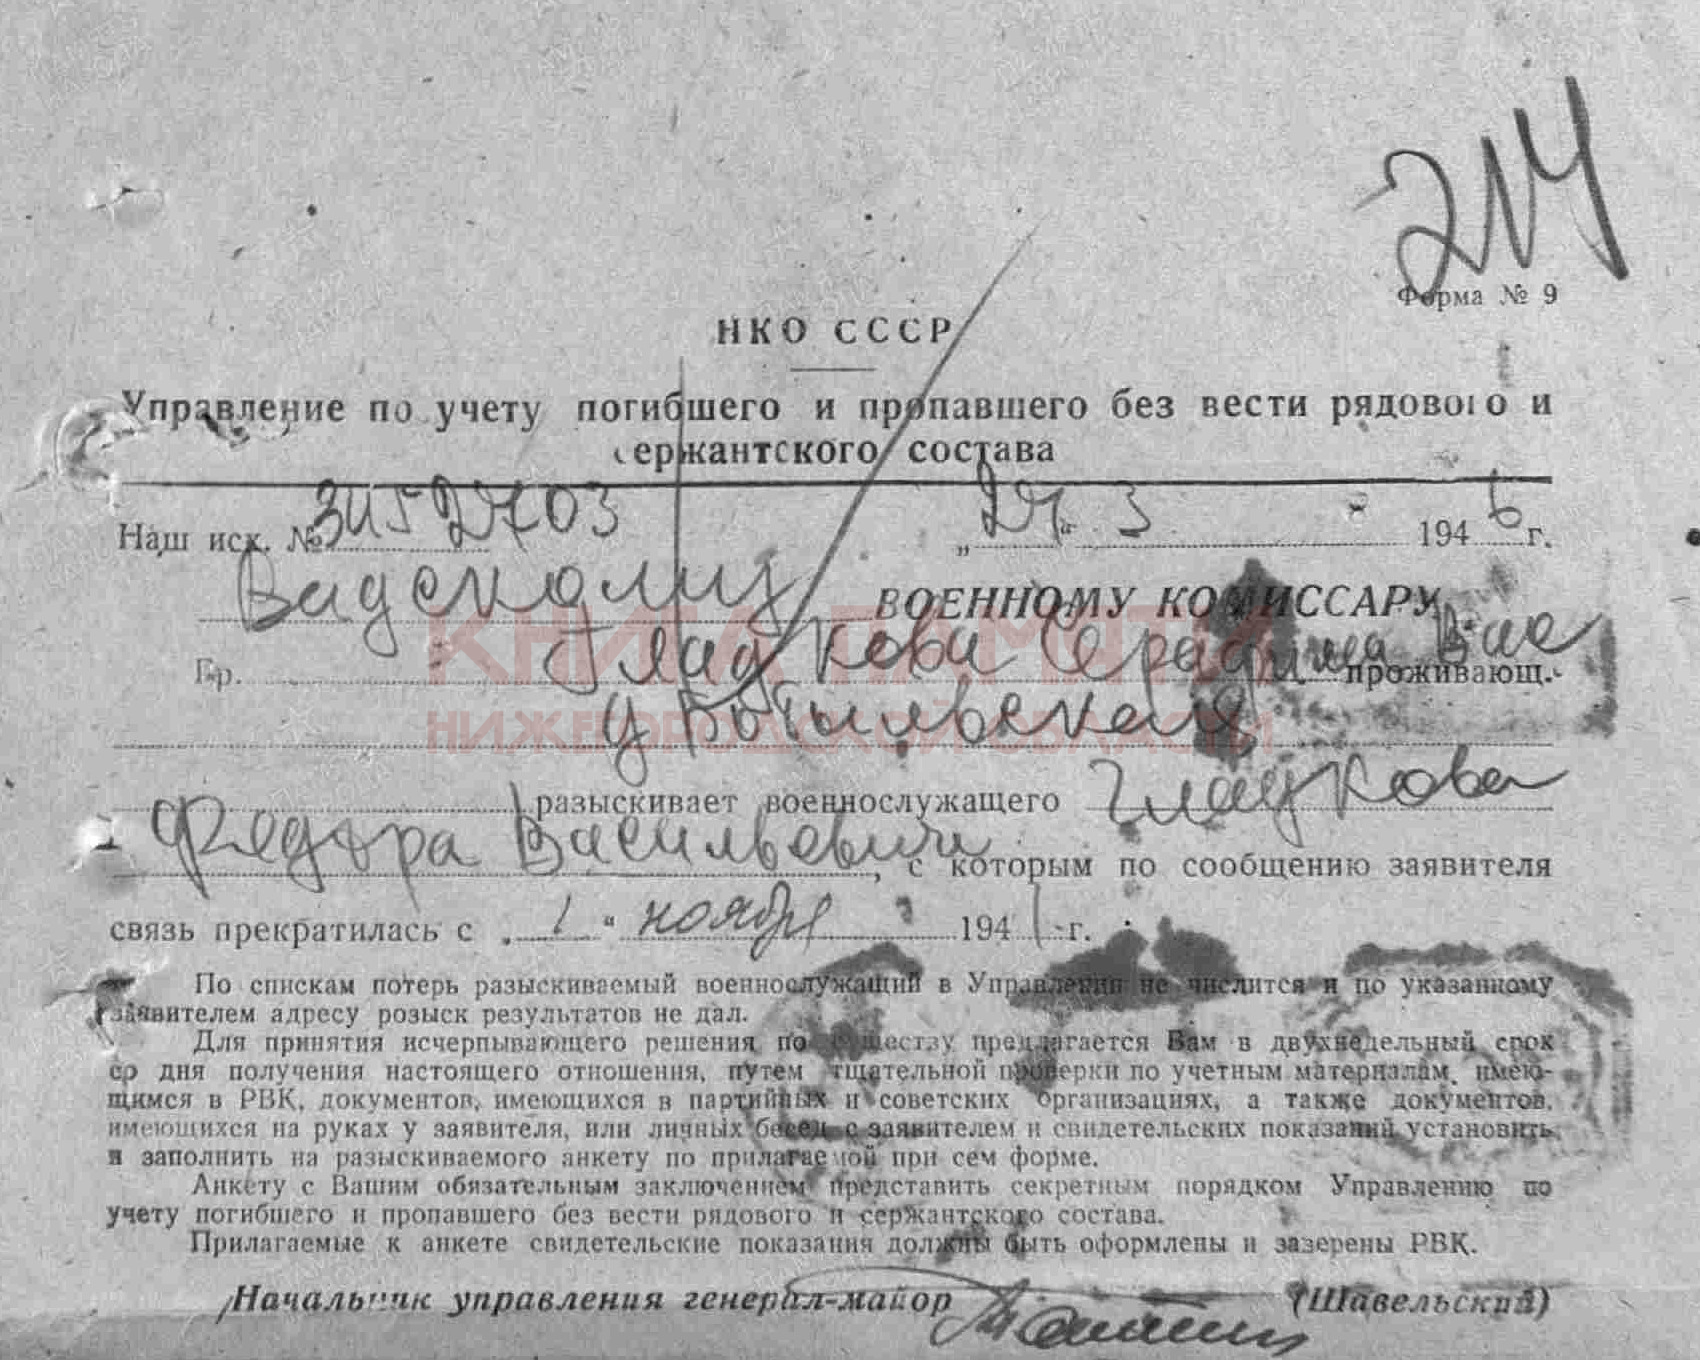 204
Форма № 9
НКО СССР
Управление по учету погибшего и пропавшего без вести рядового и
сержантского состава
Наш исх. № 3452703 „24“ 3 1946 г.
Вадскому ВОЕННОМУ КОМИССАРУ
КНИГА ПАМЯТИ
Гр. Гладкова Серафима Вас проживающ.
НИЖЕГОРОДСКОЙ ОБЛАСТИ
разыскивает военнослужащего Гладкова
Федора Васильевич, с которым по сообщению заявителя
связь прекратилась с „1“ ноября 1941 г.
По спискам потерь разыскиваемый военнослужащий в Управлении не числится и по указанному
заявителем адресу розыск результатов не дал.
Для принятия исчерпывающего решения по существу предлагается Вам в двухнедельный срок
со дня получения настоящего отношения, путем тщательной проверки по учетным материалам, имею-
щимся в РВК, документов, имеющихся в партийных и советских организациях, а также документов,
имеющихся на руках у заявителя, или личных бесед с заявителем и свидетельских показаний установить
и заполнить на разыскиваемого анкету по прилагаемой при сем форме.
Анкету с Вашим обязательным заключением представить секретным порядком Управлению по
учету погибшего и пропавшего без вести рядового и сержантского состава.
Прилагаемые к анкете свидетельские показания должны быть оформлены и заверены РВК.
Начальник управления генерал-майор (Шавельский)